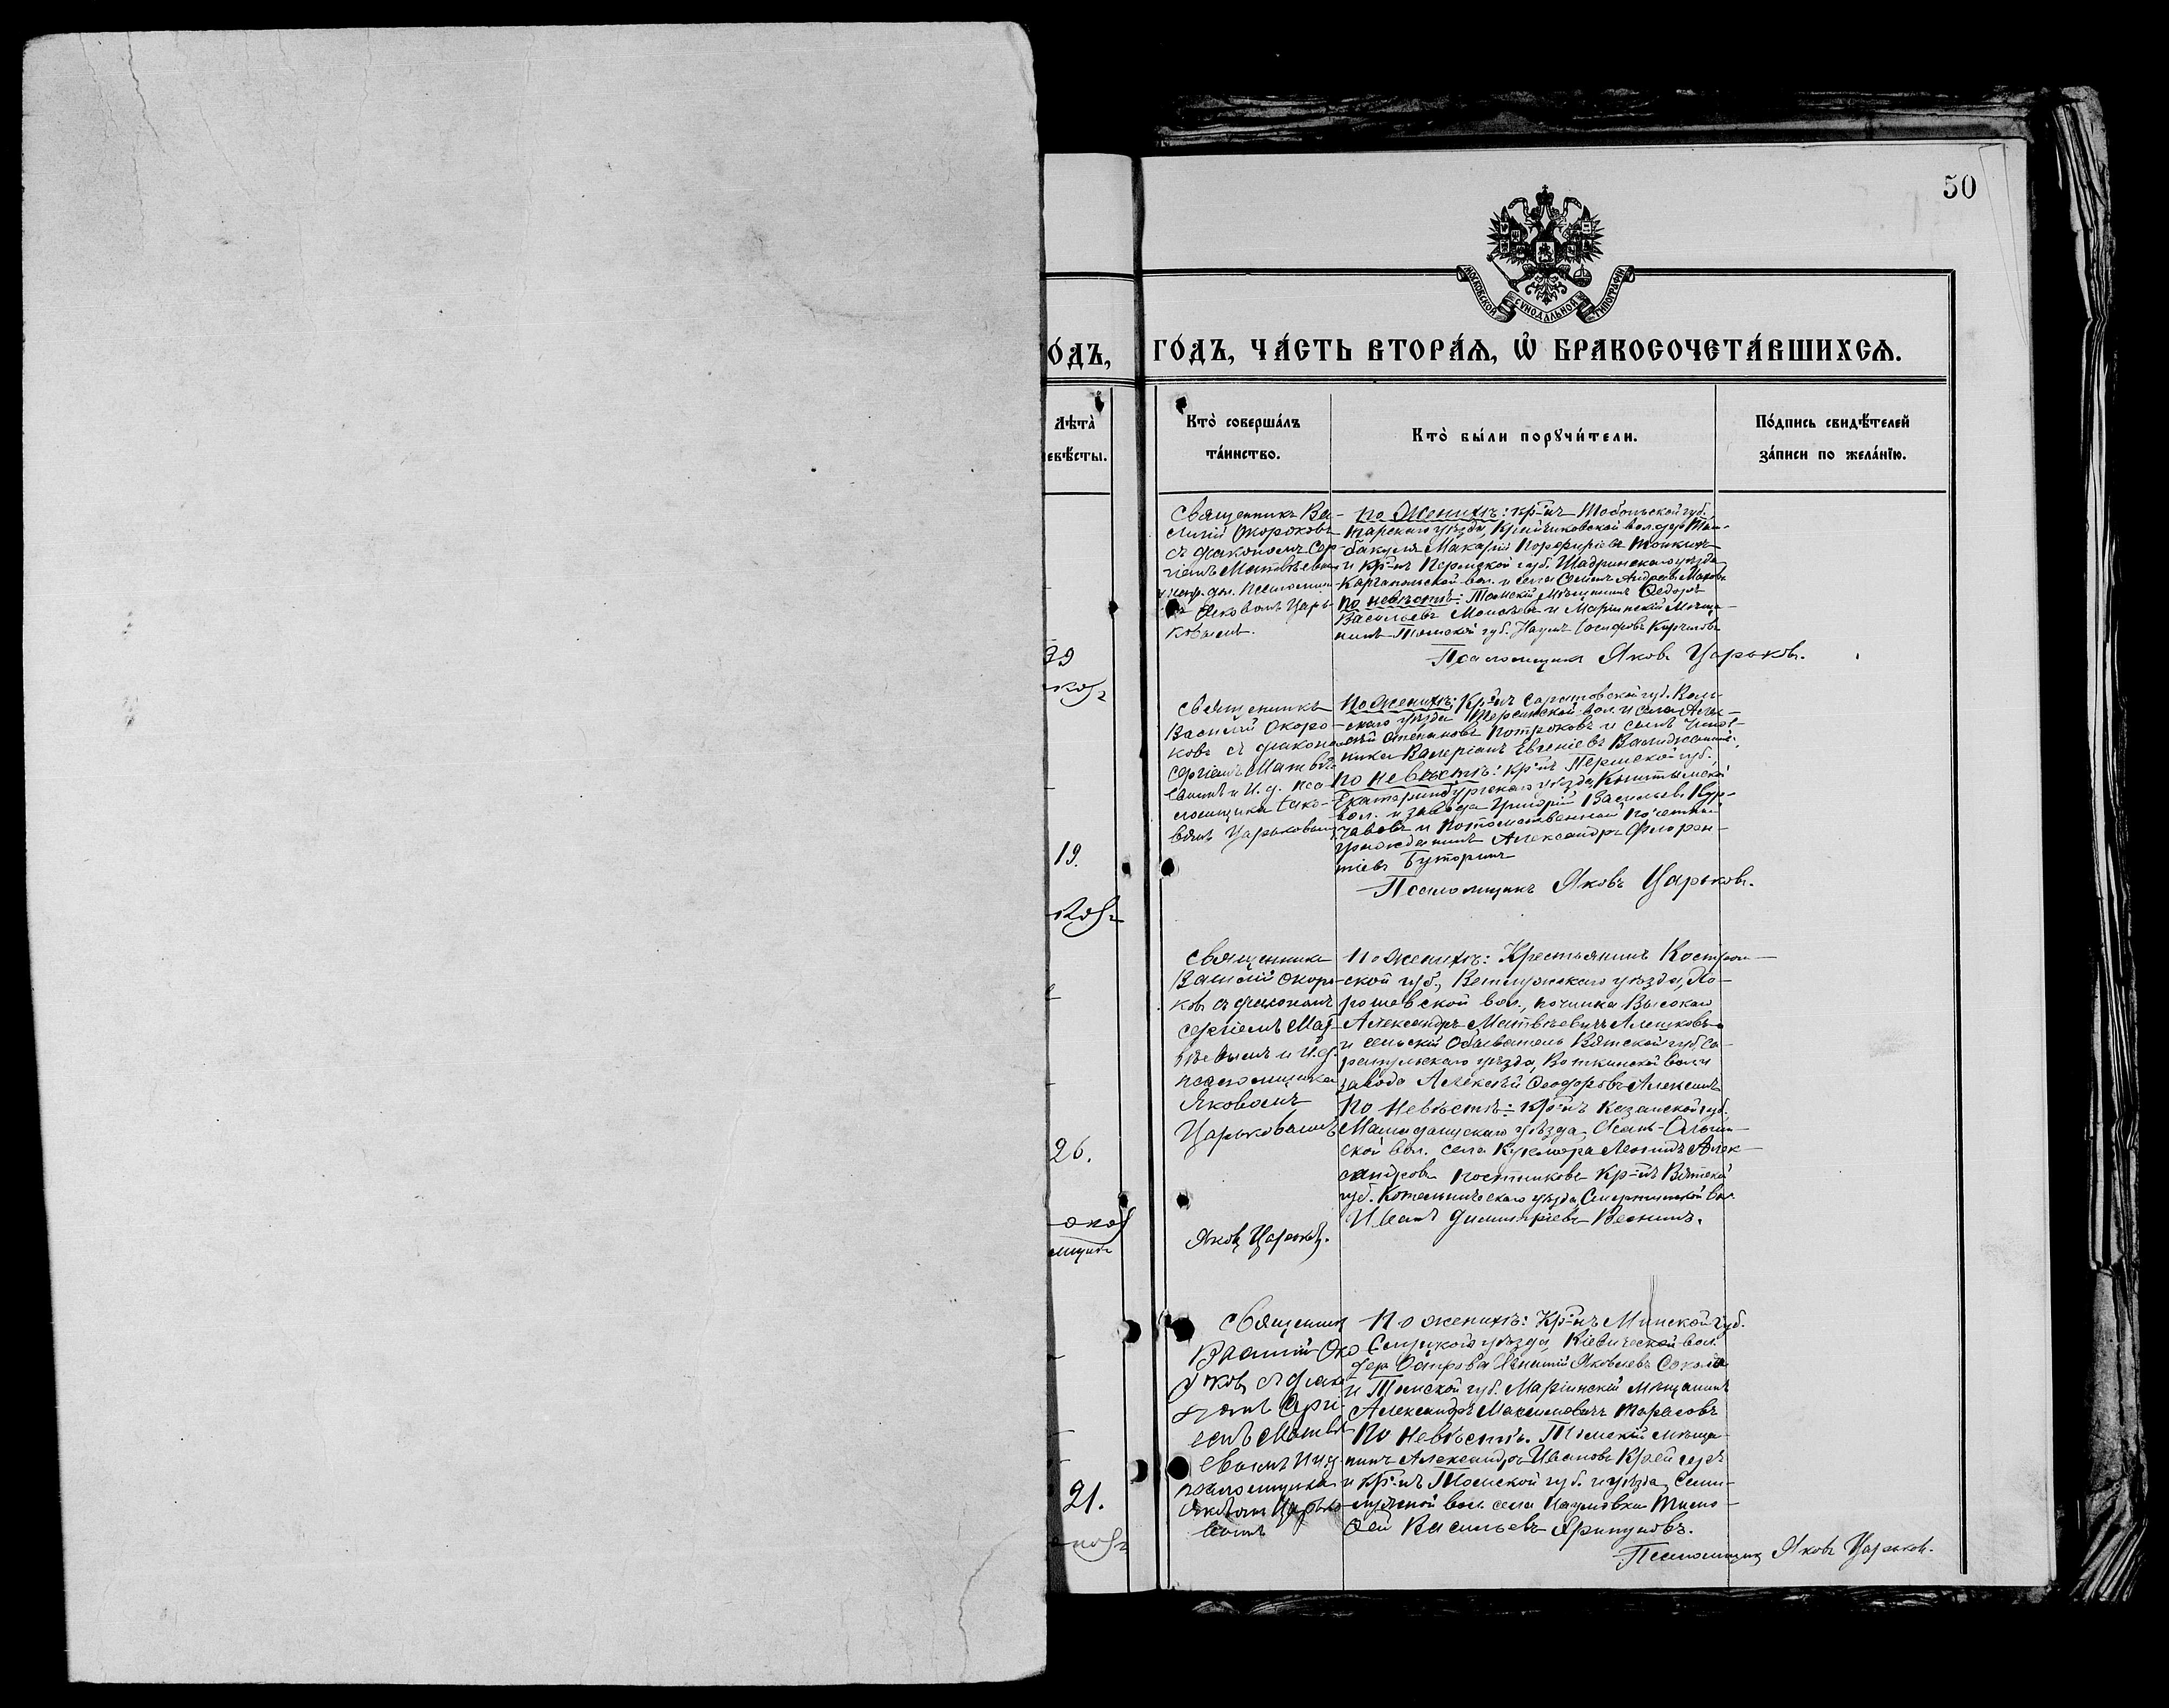 50
МОСКОВСКОЙ СѴНОДАЛЬНОЙ ТИПОГРАФІИ
О́ДЪ,
ГО́ДЪ, ЧА́СТЬ ВТОРА́Ѧ, Ѽ БРАКОСОЧЕТА́ВШИХСѦ.
Лѣта̀
евѣ́сты.
Кто̀ соверша́лъ
та́инство.
Кто̀ бы́ли порꙋчи́тели.
По́дпись свидѣ́телей
за́писи по жела́нїю.
39
19.
26.
21.
Священникъ Ва-
силій Окороковъ
съ діакономъ Сер-
гіемъ Матвѣевы
и испр. дол. псаломщи
Яковомъ Царь-
ковымъ.
по Женихѣ: кр-нъ Тобольской губ.,
Тарскаго уѣзда, вол. дер
Макарій Порфиріевъ
и кр-нъ Пермской губ. Шадринскаго уѣзда
Каргапольской вол. и села Андреевъ
по невѣстѣ: Томскій мѣщанинъ Ѳедоръ
Васильевъ и Маріинскій мѣща-
нинъ Томской губ. Наумъ Іосифовъ
Псаломщикъ Яковъ Царьковъ.
Священникъ
Василій Окоро-
ковъ съ діакономъ
Сергіемъ Матвѣ
евымъ и И. д. пса-
ломщика Яко-
вомъ Царьковымъ
По женихѣ: Кр-нъ Саратовской губ. Воль-
скаго уѣзда Терсинской вол. и села Алек-
сѣй Степановъ и сынъ
Валеріанъ Евгеніевъ
по невѣстѣ: кр-нъ Пермской губ.
Екатеринбургскаго уѣзда, Кыштымской
вол. и завода Григорій Васильевъ Кур-
чавовъ и Потомственный почетный
гражданинъ Александръ Флорен-
тіевъ Буторинъ
Псаломщикъ Яковъ Царьковъ.
Священникъ
Василій Окоро-
ковъ съ діакономъ
Сергіемъ Мат-
вѣевымъ и И. д.
псаломщика
Яковомъ
Царьковымъ
Яковъ Царьковъ.
По женихѣ: Крестьянинъ Костром-
ской губ., Ветлужскаго уѣзда, Хо-
рошевской вол., починка Высокаго
Александръ Матвѣевичъ
и сельскій Обыватель Вятской губ. Са-
рапульскаго уѣзда, Воткинской вол. и
завода Алексѣй Ѳеодоровъ
По Невѣстѣ: кр-нъ Казанской губ.
Мамадышскаго уѣзда,
ской вол. села Кукмора Леонидъ Алек-
сандровъ Постниковъ кр-нъ Вятской
губ. Котельническаго уѣзда, вол.
Иванъ Димитріевъ Веснинъ.
Священникъ
Василій Око
ковъ съ діако
номъ Серги-
емъ Матвѣ
евымъ и и д
псаломщика
Яковомъ Царько
вымъ
По женихѣ: Кр-нъ Минской губ.
Слуцкаго уѣзда, Кіевической вол.
дер Яковлевъ
и Томской губ. Маріинскій мѣщанинъ
Александръ Максимовичъ Тарасовъ
По Невѣстѣ. Томскій мѣща-
нинъ Александръ Ивановъ
и кр-нъ Томской губ. и уѣзда, Семи-
лужной вол. села Наумовки Тимо-
ѳей Васильевъ
Псаломщикъ Яковъ Царьковъ.